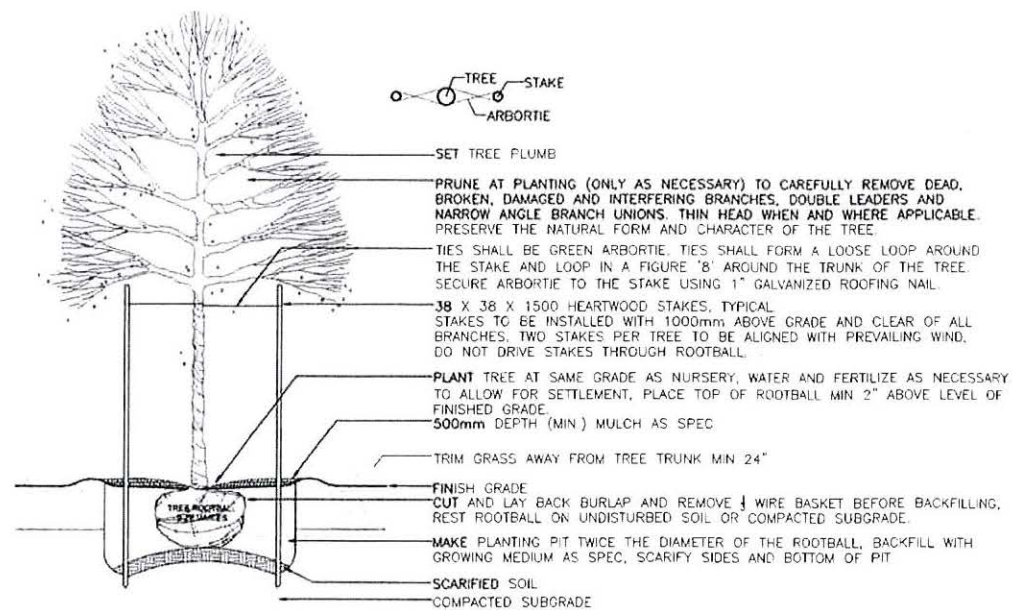 TREE
STAKE
ARBORTIE
SET TREE PLUMB
PRUNE AT PLANTING (ONLY AS NECESSARY) TO CAREFULLY REMOVE DEAD,
BROKEN, DAMAGED AND INTERFERING BRANCHES, DOUBLE LEADERS AND
NARROW ANGLE BRANCH UNIONS. THIN HEAD WHEN AND WHERE APPLICABLE.
PRESERVE THE NATURAL FORM AND CHARACTER OF THE TREE.
TIES SHALL BE GREEN ARBORTIE. TIES SHALL FORM A LOOSE LOOP AROUND
THE STAKE AND LOOP IN A FIGURE '8' AROUND THE TRUNK OF THE TREE.
SECURE ARBORTIE TO THE STAKE USING 1" GALVANIZED ROOFING NAIL.
38 X 38 X 1500 HEARTWOOD STAKES, TYPICAL
STAKES TO BE INSTALLED WITH 1000mm ABOVE GRADE AND CLEAR OF ALL
BRANCHES, TWO STAKES PER TREE TO BE ALIGNED WITH PREVAILING WIND,
DO NOT DRIVE STAKES THROUGH ROOTBALL.
PLANT TREE AT SAME GRADE AS NURSERY, WATER AND FERTILIZE AS NECESSARY
TO ALLOW FOR SETTLEMENT, PLACE TOP OF ROOTBALL MIN 2" ABOVE LEVEL OF
FINISHED GRADE.
500mm DEPTH (MIN) MULCH AS SPEC
TRIM GRASS AWAY FROM TREE TRUNK MIN 24"
FINISH GRADE
CUT AND LAY BACK BURLAP AND REMOVE WIRE BASKET BEFORE BACKFILLING,
REST ROOTBALL ON UNDISTURBED SOIL OR COMPACTED SUBGRADE.
TREE ROOTBALL
MAKE PLANTING PIT TWICE THE DIAMETER OF THE ROOTBALL, BACKFILL WITH
GROWING MEDIUM AS SPEC, SCARIFY SIDES AND BOTTOM OF PIT
SCARIFIED SOIL
COMPACTED SUBGRADE